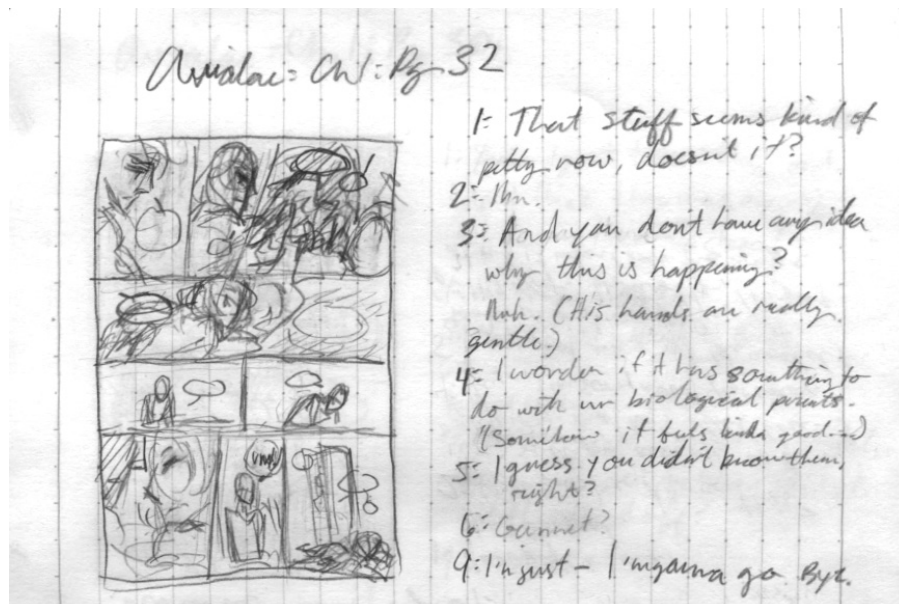 Avialae: CH1: Pg 32
1: That stuff seems kind of
petty now, doesn't it?
2: Mn.
3: And you don't have any idea
why this is happening?
Nnh. (His hands are really
gentle.)
4: I wonder if it has something to
do with ur biological parents.
(Somehow it feels kinda good...)
5: I guess you didn't know them,
right?
6: Gannet?
9: I'm just - I'm gonna go. Bye.